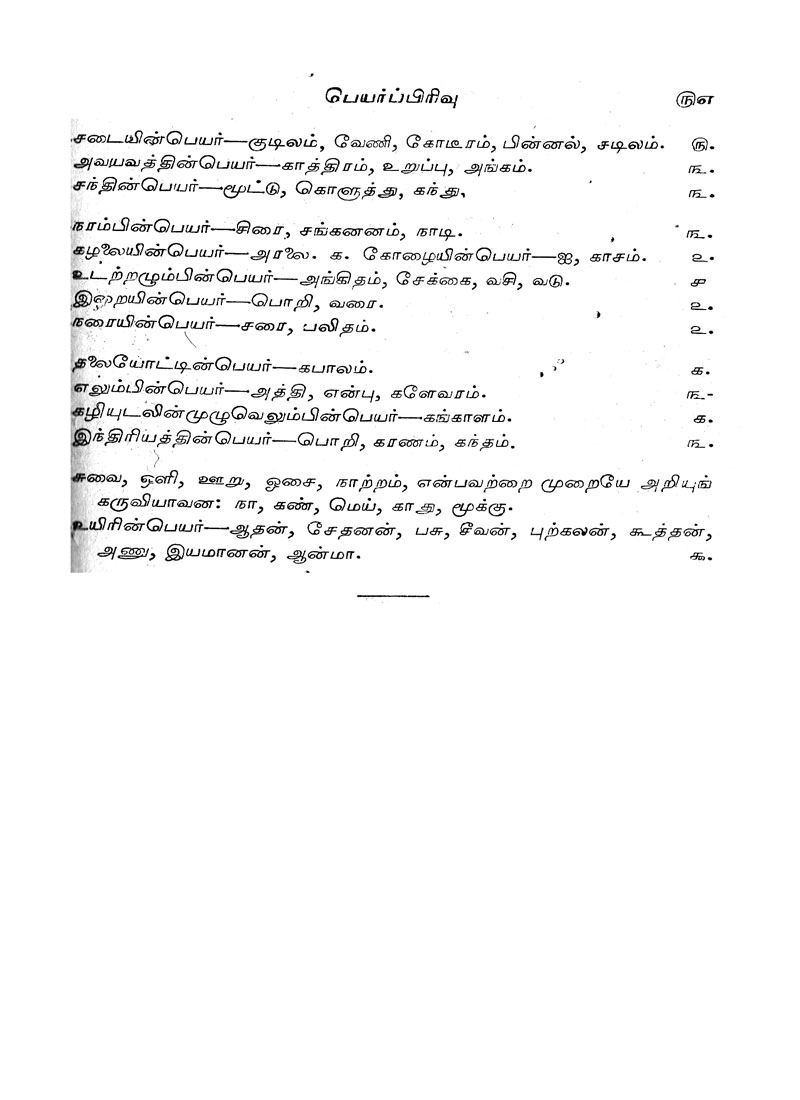 பெயர்ப்பிரிவு ௫௭
சடையின்பெயர்—குடிலம், வேணி, கோடீரம், பின்னல், சடிலம். ௫.
அவயவத்தின்பெயர்—காத்திரம், உறுப்பு, அங்கம். ௩.
சந்தின்பெயர்—மூட்டு, கொளுத்து, கந்து, ௩.
நரம்பின்பெயர்—சிரை, சங்கனனம், நாடி. ௩.
கழலையின்பெயர்—அரலை. க. கோழையின்பெயர்—ஐ, காசம். ௨.
உடற்றழும்பின்பெயர்—அங்கிதம், சேக்கை, வசி, வடு. ௪
இறையின்பெயர்—பொறி, வரை. ௨.
நரையின்பெயர்—சரை, பலிதம். ௨.
தலையோட்டின்பெயர்—கபாலம். க.
எலும்பின்பெயர்—அத்தி, என்பு, களேவரம். ௩-
கழியுடலின்முழுவெலும்பின்பெயர்—கங்காளம். க.
இந்திரியத்தின்பெயர்—பொறி, கரணம், கந்தம். ௩.
சுவை, ஒளி, ஊறு, ஓசை, நாற்றம், என்பவற்றை முறையே அறியுங்
கருவியாவன: நா, கண், மெய், காது, மூக்கு.
உயிரின்பெயர்—ஆதன், சேதனன், பசு, சீவன், புற்கலன், கூத்தன்,
அணு, இயமானன், ஆன்மா. ௯.